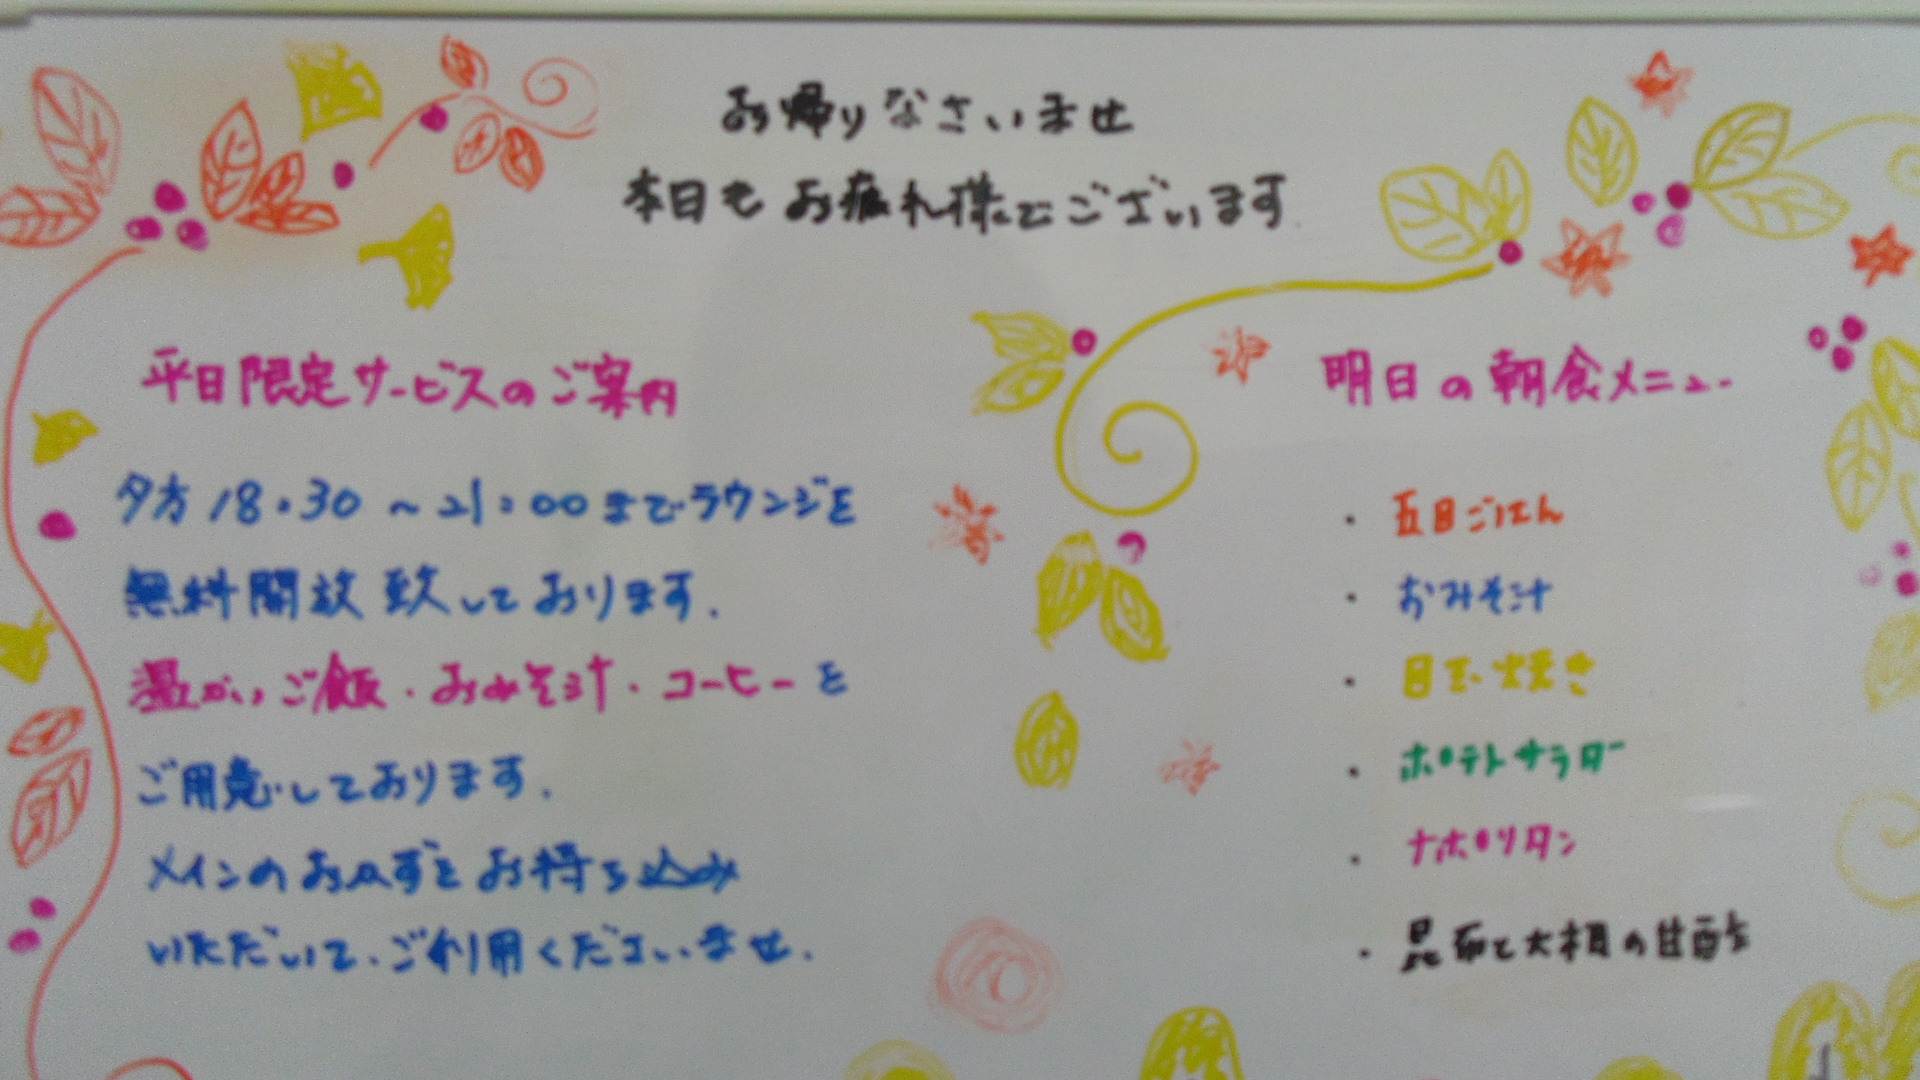 お帰りなさいませ
本日もお疲れ様でございます
平日限定サービスのご案内
夕方18:30~21:00までラウンジを
無料開放致しております.
温かいご飯・おみそ汁・コーヒーを
ご用意しております.
メインのおかずをお持ち込み
いただいて、ご利用くださいませ.
明日の朝食メニュー
・五目ごはん
・おみそ汁
・目玉焼き
・ポテトサラダー
・ナポリタン
・昆布と大根の甘酢